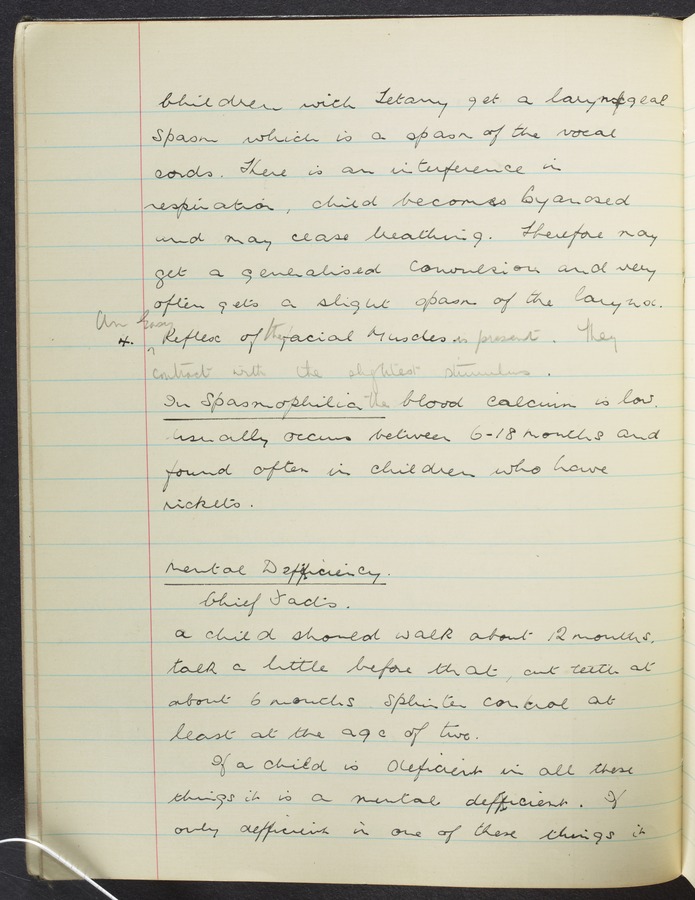 Children with Tetany get a laryngeal
spasm which is a spasm of the vocal
cords. There is an interference in
respiration, child becomes Cyanosed
and may cease breathing. Therefore may
get a generalised Convulsion and very
often gets a slight spasm of the larynx.
4. An Reflex of the facial Muscles is present. They
contract with the slightest stimulus.
In Spasmophilia the blood calcium is low.
Usually occurs between 6-18 months and
found often in children who have
rickets.
Mental Defficiency.
Chief Facts.
a child should walk about 12 months,
talk a little before that, cut teeth at
about 6 months Sphinter control at
least at the age of two.
If a child is deficient in all these
things it is a mental defficient. If
only defficient in one of these things it